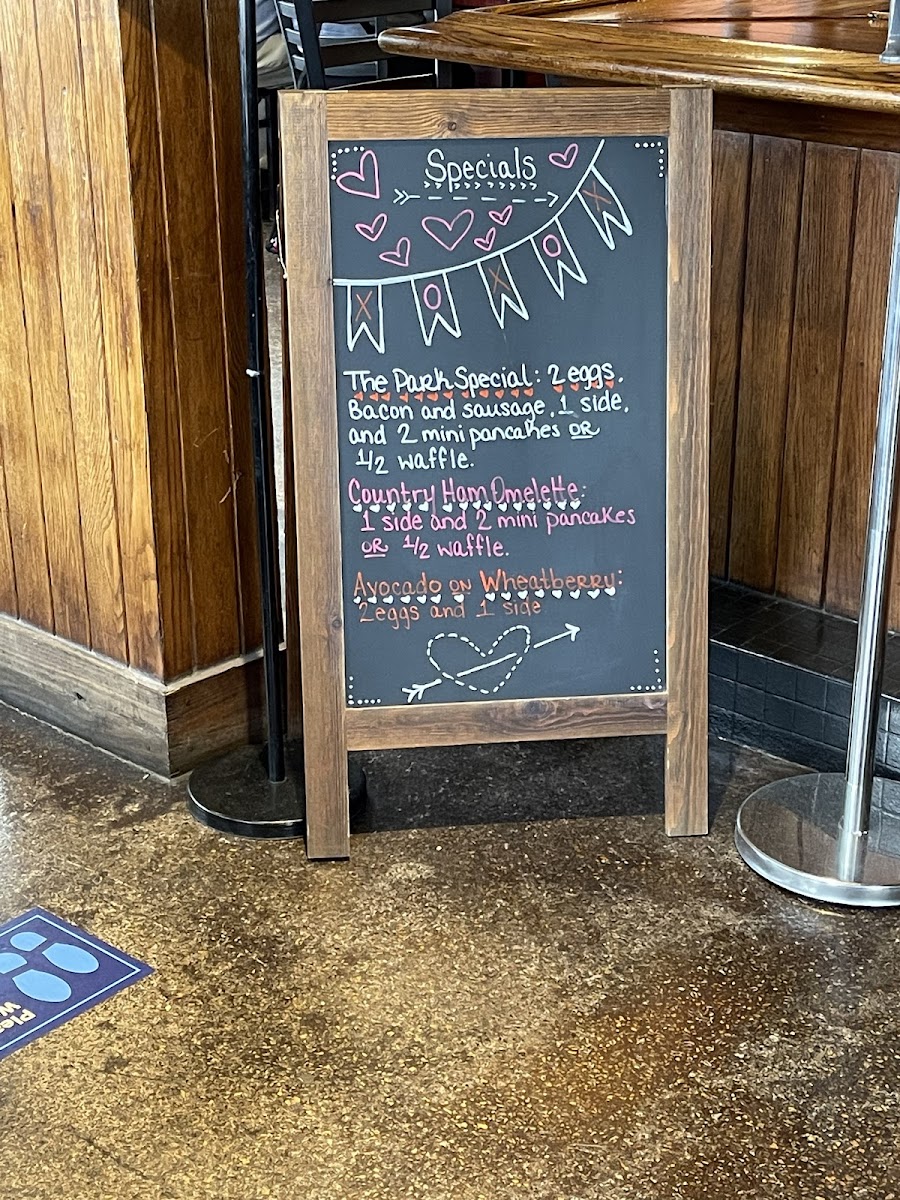 Specials
X O X O X
The Park Special: 2 eggs,
Bacon and sausage, 1 side,
and 2 mini pancakes OR
1/2 waffle.
Country Ham Omelette:
1 side and 2 mini pancakes
OR 1/2 waffle.
Avocado ON Wheatberry:
2eggs and 1 side